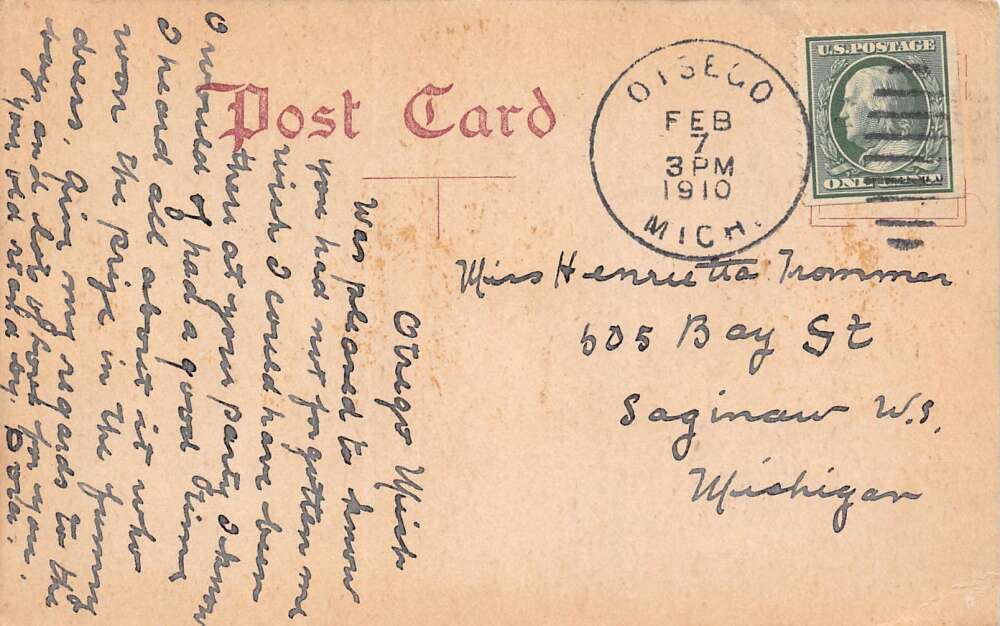 Post Card
OTSEGO
FEB
7
3 PM
1910
MICH.
U.S. POSTAGE
ONE
Miss Henrietta Trommer
505 Bay St
Saginaw W.S.
Michigan
Otsego Mich
Was pleased to know
you had not forgotten me
wish I could have been
there at your party I know
I would of had a good time
I heard all about it who
won the prize in the funny
dress, Give my regards to the
boys and lots of love for you.
your old stand by